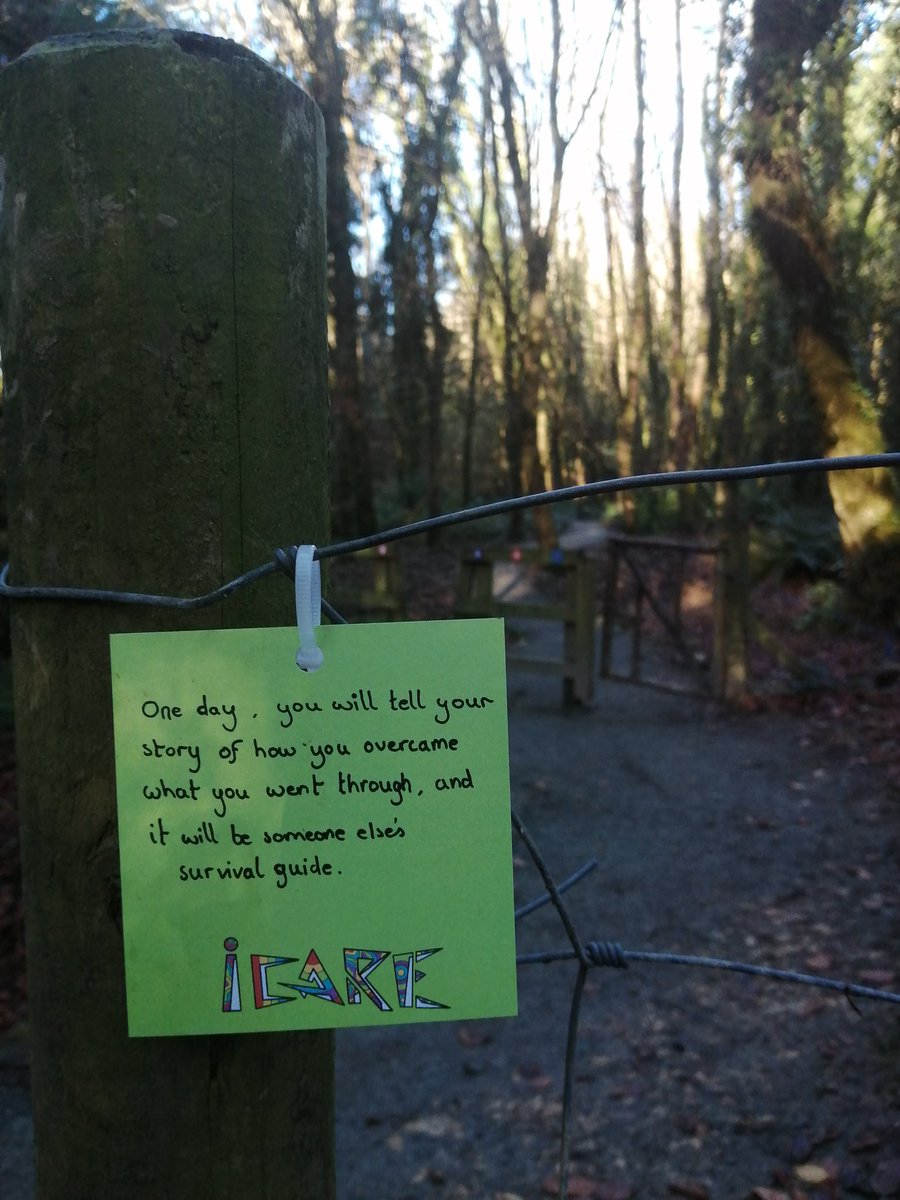 One day, you will tell your
story of how you overcame
what you went through, and
it will be someone else's
survival guide.
iCARE